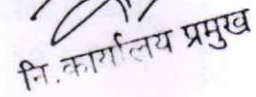 नि.कार्यालय प्रमुख